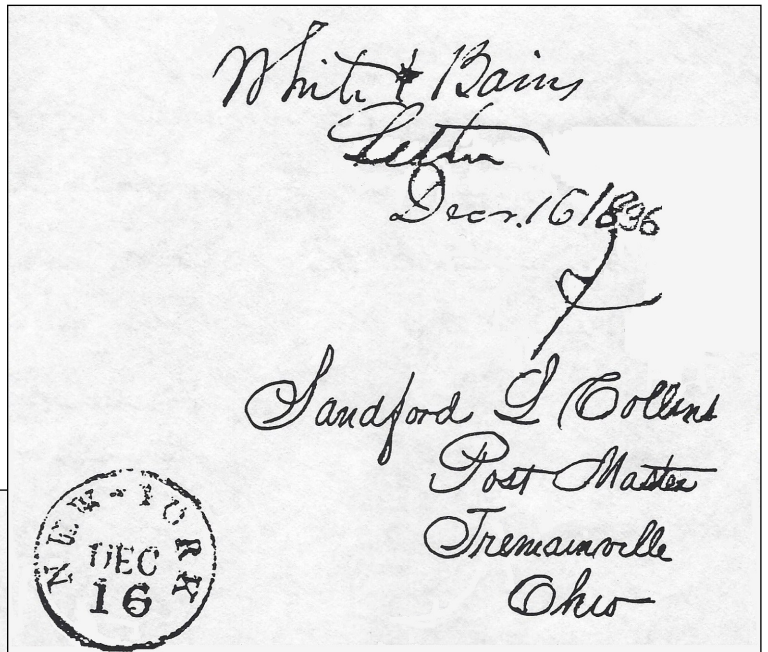 White & Bains
Letter
Decr. 16 1836
Sandford L Collins
Post Master
Tremainville
Ohio
NEW-YORK
DEC
16